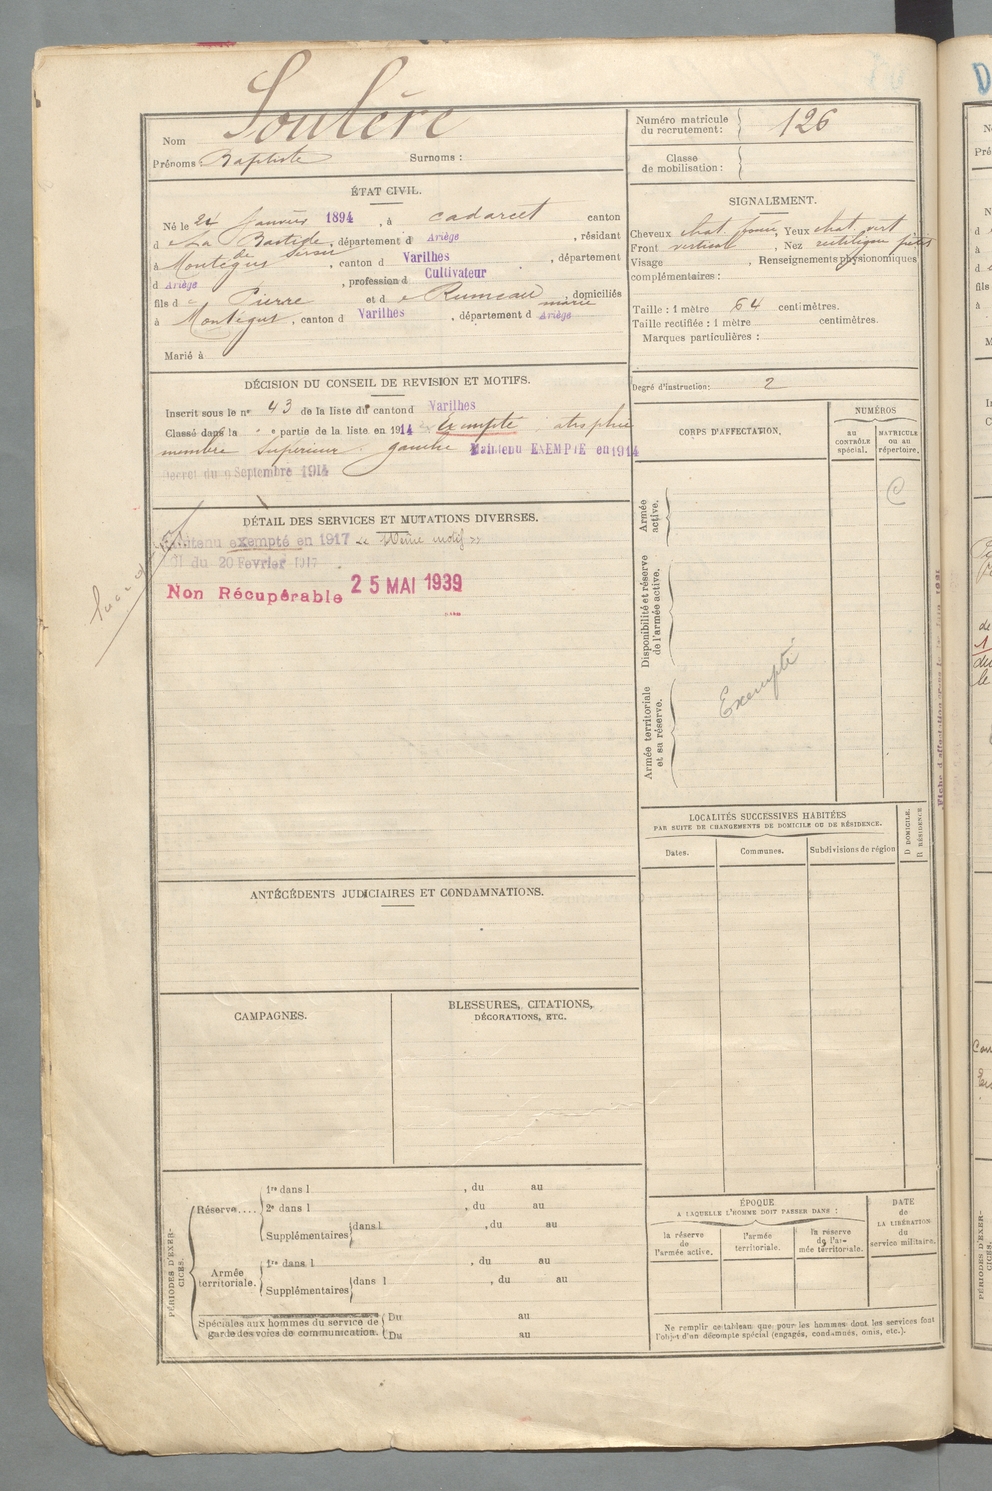 Nom Soulère
Prénoms : Baptiste Surnoms :
Numéro matricule du recrutement : 126
Classe de mobilisation :
ÉTAT CIVIL.
Né le 24 Janvier 1894, à Cadarcet canton
d e La Bastide de Sérou, département d Ariège, résidant
à Montégut, canton d Varilhes, département
d Ariège, profession d Cultivateur
fils d e Pierre et d e Rumeau marie, domiciliés
à Montégut, canton d Varilhes, département d Ariège
Marié à
SIGNALEMENT.
Cheveux chat. foncé, Yeux chat vert
Front vertical, Nez rectiligne
Visage , Renseignements physionomiques
complémentaires :
Taille : 1 mètre 64 centimètres.
Taille rectifiée : 1 mètre centimètres.
Marques particulières :
Degré d'instruction: 2
DÉCISION DU CONSEIL DE REVISION ET MOTIFS.
Inscrit sous le n° 43 de la liste du canton d Varilhes
Classé dans la e partie de la liste en 1914 Exempté atrophie
membre Supérieur gauche Maintenu EXEMPTÉ en 1914
Décret du 9 Septembre 1914
DÉTAIL DES SERVICES ET MUTATIONS DIVERSES.
Maintenu exempté en 1917 « même motif »
Loi du 20 Fevrier 1917
Non Récupérable 25 MAI 1939
CORPS D'AFFECTATION.
NUMÉROS
AU CONTRÔLE spécial.
MATRICULE ou au répertoire.
C
Armée active.
Disponibilité et réserve de l'armée active.
Armée territoriale et sa réserve.
Exempté
LOCALITÉS SUCCESSIVES HABITÉES
PAR SUITE DE CHANGEMENTS DE DOMICILE OU DE RÉSIDENCE.
Dates. Communes. Subdivisions de région
D. DOMICILE.
R. RÉSIDENCE
ANTÉCÉDENTS JUDICIAIRES ET CONDAMNATIONS.
CAMPAGNES.
BLESSURES, CITATIONS,
DÉCORATIONS, ETC.
PÉRIODES D'EXERCICES.
Réserve....
1re dans l , du au
2e dans l , du au
Supplémentaires dans l , du au
Armée territoriale.
1re dans l , du au
Supplémentaires dans l , du au
Spéciales aux hommes du service de
garde des voies de communication.
Du au
Du au
ÉPOQUE
A LAQUELLE L'HOMME DOIT PASSER DANS :
la réserve de l'armée active.
l'armée territoriale.
la réserve de l'armée territoriale.
DATE
de
LA LIBÉRATION
du
service militaire.
Ne remplir ce tableau que pour les hommes dont les services font
l'objet d'un décompte spécial (engagés, condamnés, omis, etc.).